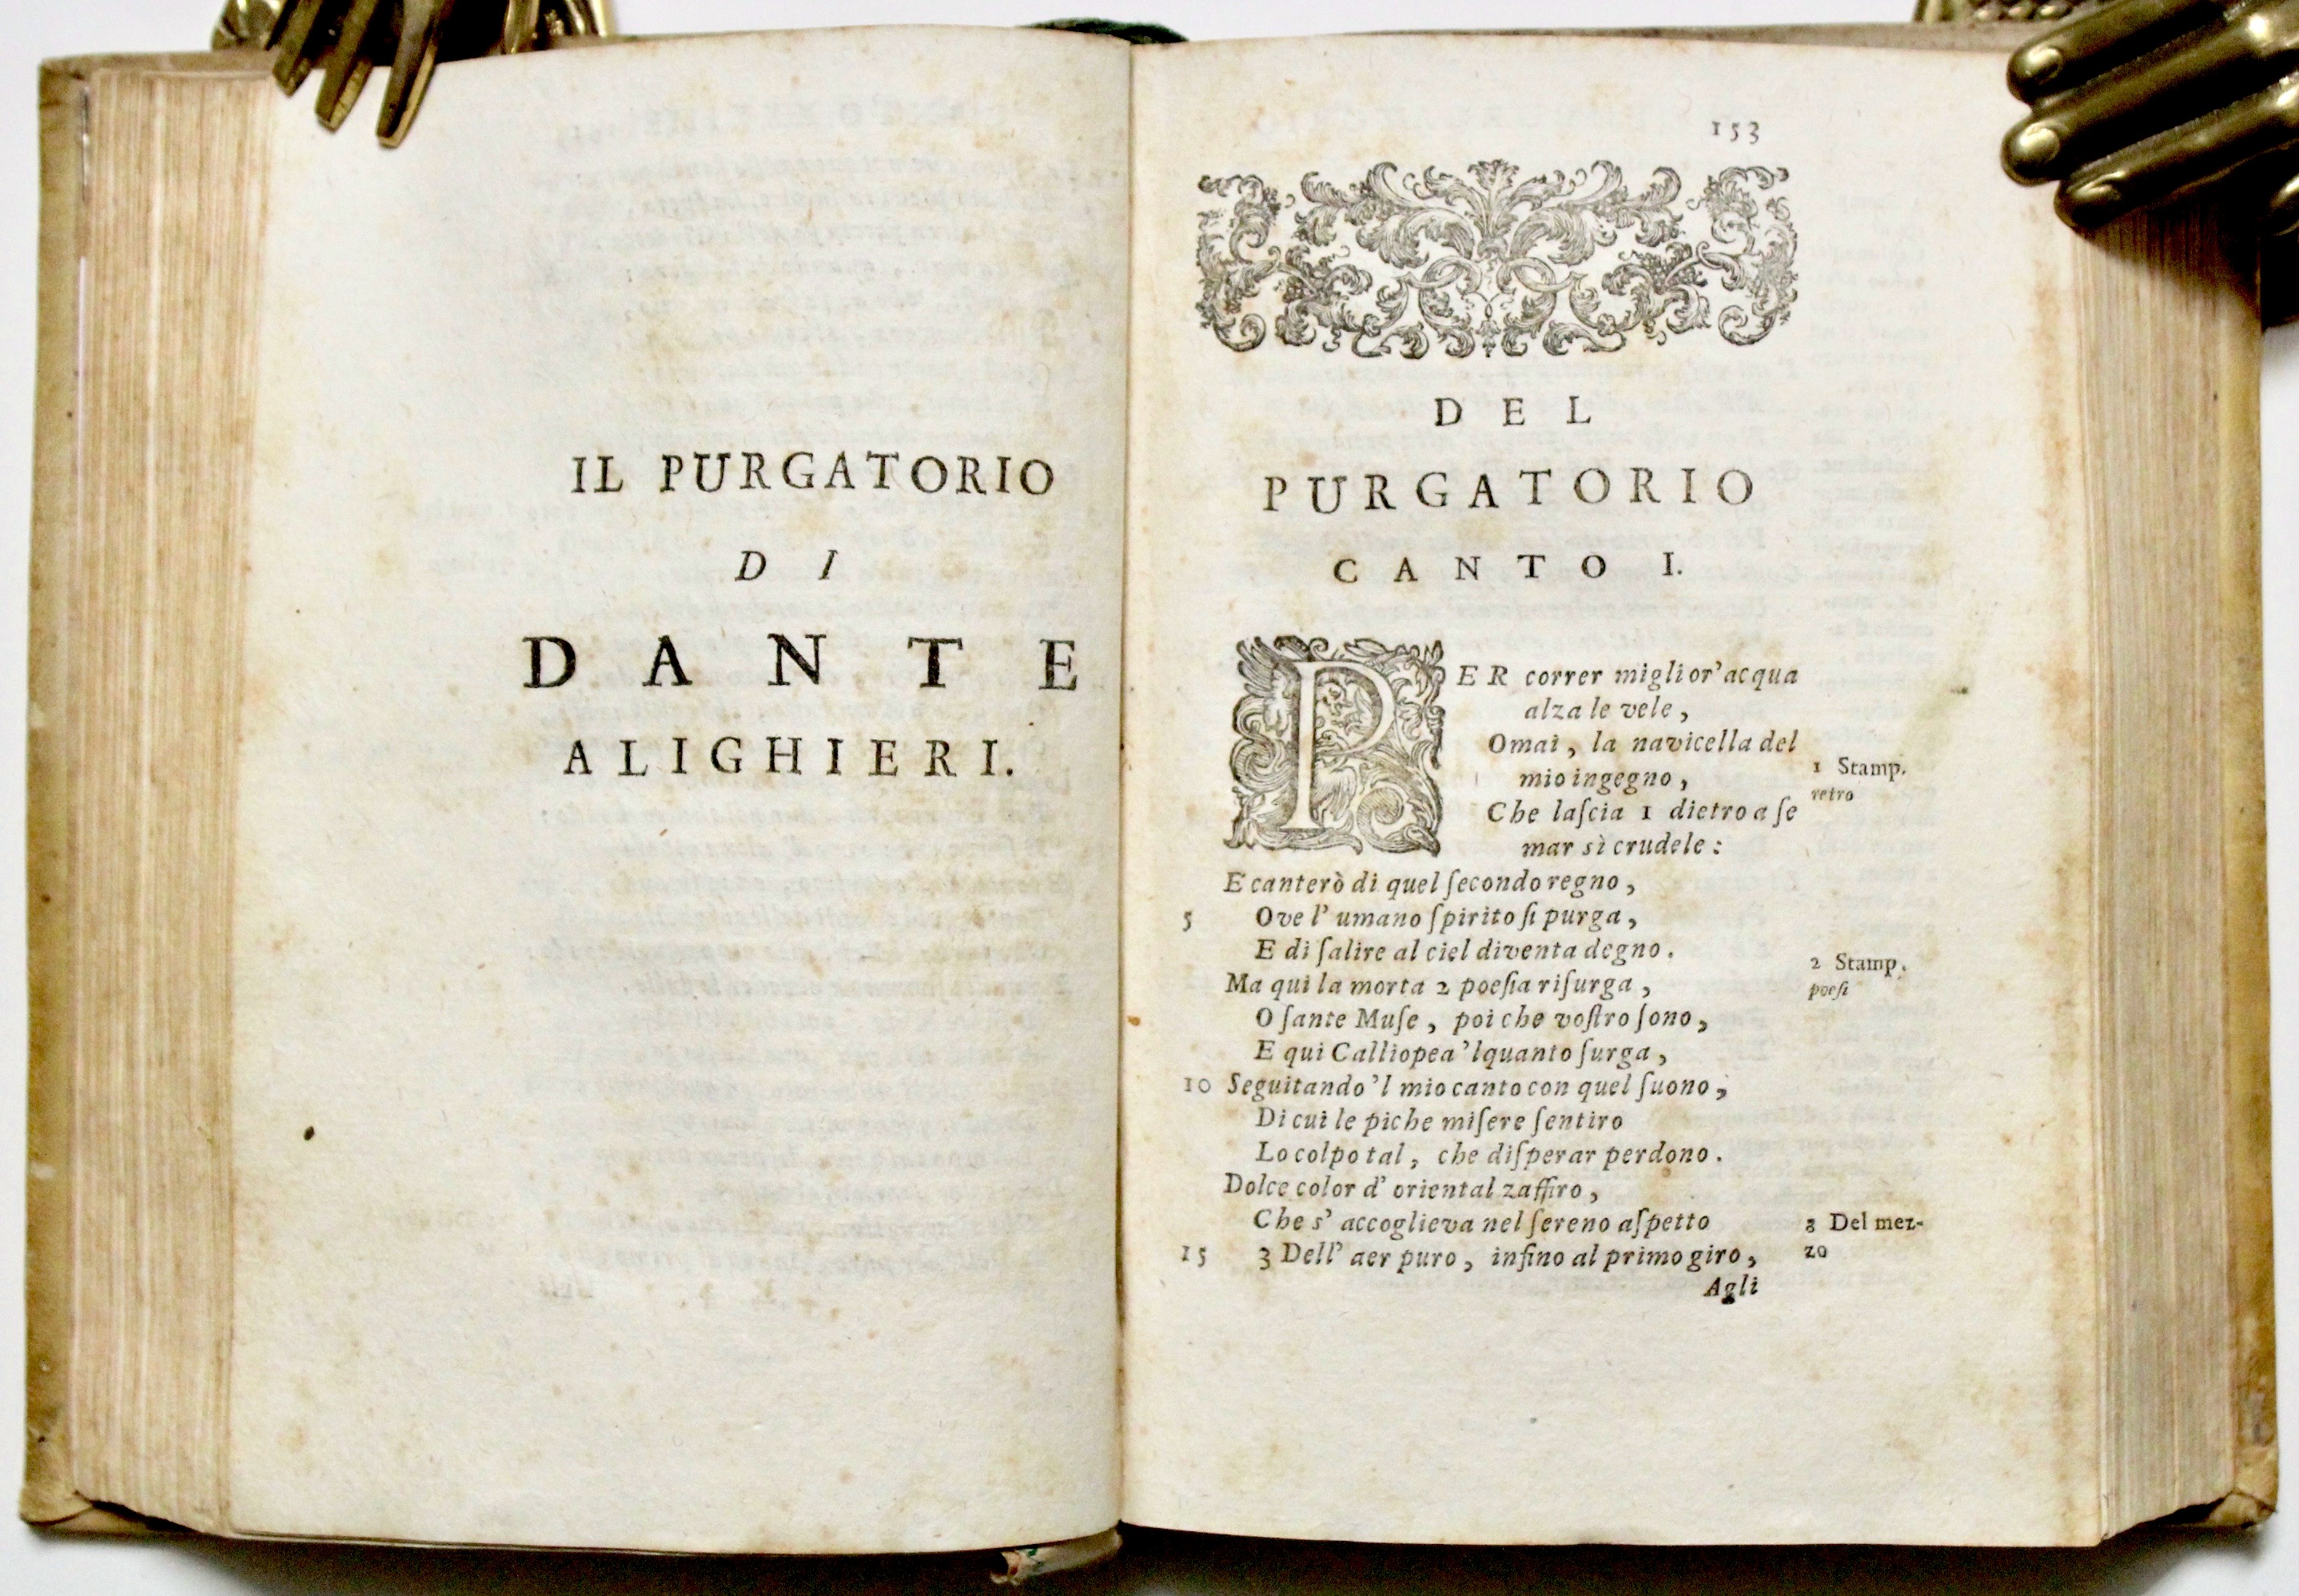 IL PURGATORIO
DI
DANTE
ALIGHIERI.
153
DEL
PURGATORIO
CANTO I.
PER correr miglior' acqua
alza le vele,
Omai, la navicella del
mio ingegno,
Che laſcia 1 dietro a ſe
mar sì crudele:
E canterò di quel ſecondo regno,
5 Ove l' umano ſpirito ſi purga,
E di ſalire al ciel diventa degno.
Ma qui la morta 2 poeſia riſurga,
O ſante Muſe, poi che voſtro ſono,
E qui Calliopea 'lquanto ſurga,
10 Seguitando 'l mio canto con quel ſuono,
Di cui le piche miſere ſentiro
Lo colpo tal, che diſperar perdono.
Dolce color d' oriental zaffiro,
Che s' accoglieva nel ſereno aſpetto
15 3 Dell' aer puro, infino al primo giro,
Agli
1 Stamp.
retro
2 Stamp.
poeſi
3 Del mez-
zo